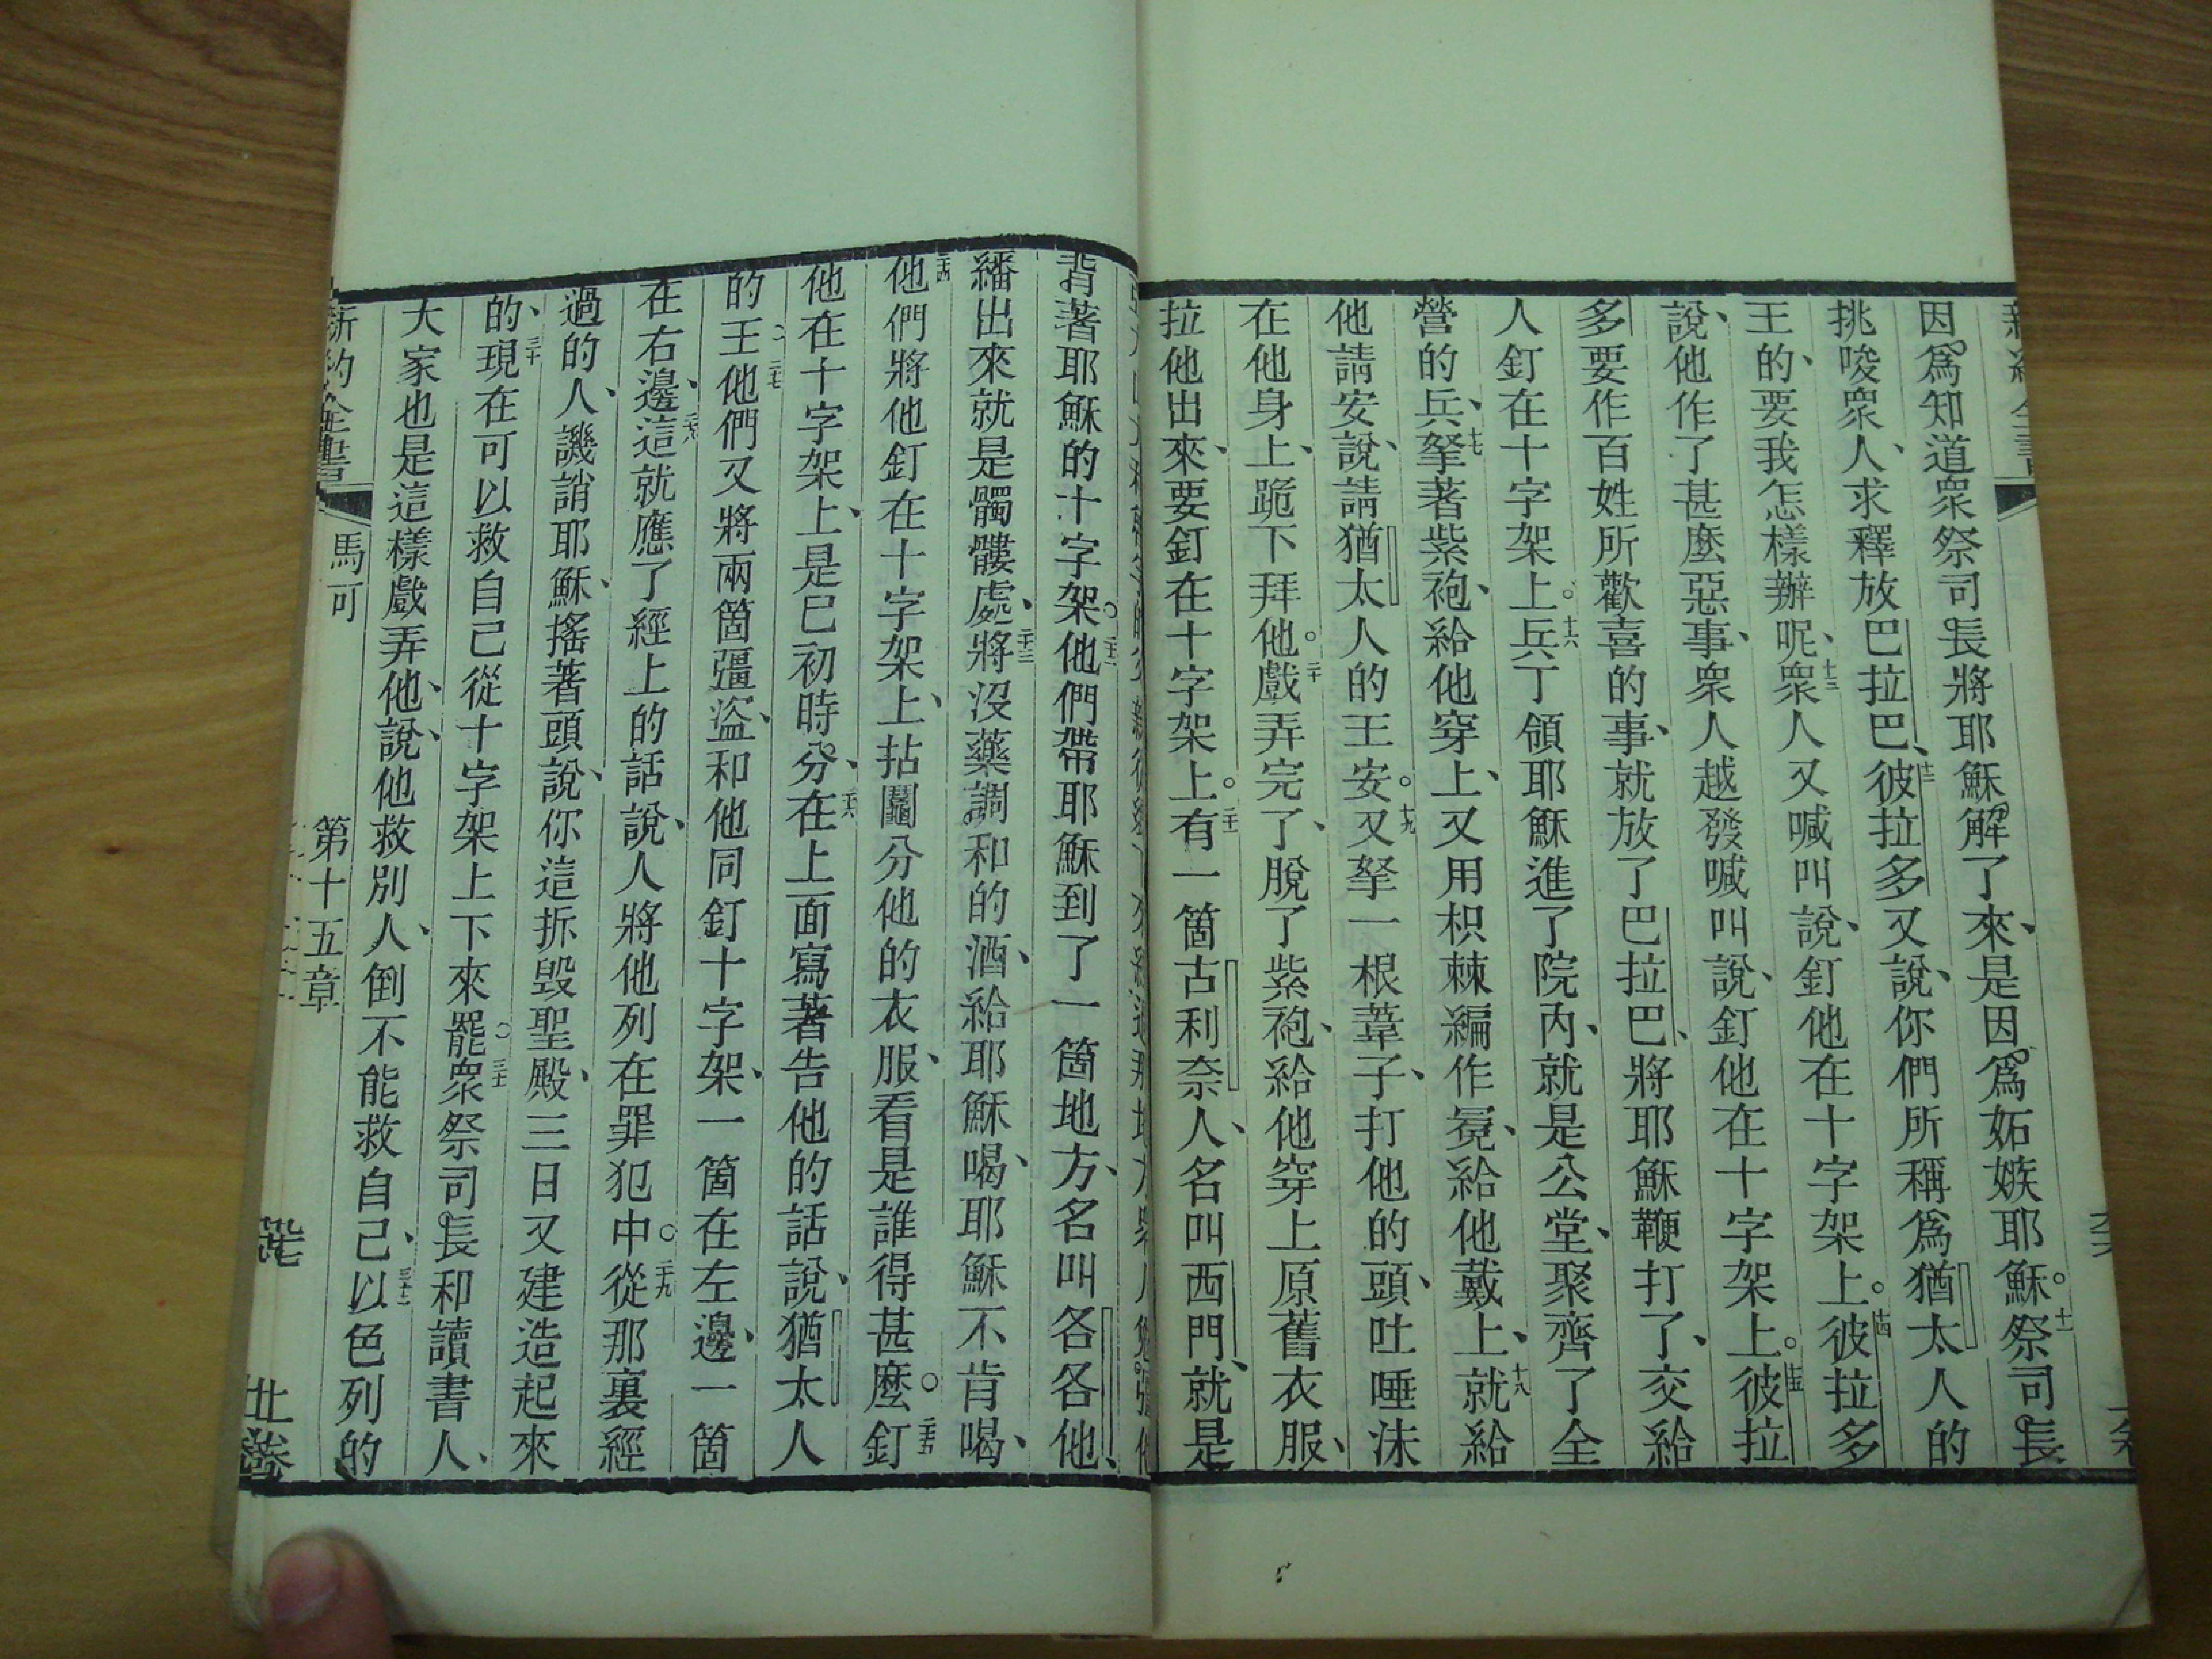 因爲知道衆祭司長將耶穌解了來、是因爲妬嫉耶穌。十一祭司長
挑唆衆人、求釋放巴拉巴、十二彼拉多又說、你們所稱爲猶太人的
王的、要我怎樣辦呢、十三衆人又喊叫說、釘他在十字架上。十四彼拉多
說、他作了甚麼惡事、衆人越發喊叫說、釘他在十字架上。十五彼拉
多要作百姓所歡喜的事、就放了巴拉巴、將耶穌鞭打了、交給
人釘在十字架上。十六兵丁領耶穌進了院內、就是公堂、聚齊了全
營的兵、十七拏著紫袍、給他穿上、又用枳棘編作冕、給他戴上、十八就給
他請安說、請猶太人的王安。十九又拏一根葦子、打他的頭、吐唾沫
在他身上、跪下拜他。二十戲弄完了、脫了紫袍、給他穿上原舊衣服、
拉他出來、要釘在十字架上。二十一有一箇古利奈人、名叫西門、就是
背著耶穌的十字架。二十二他們帶耶穌到了一箇地方、名叫各各他、
繙出來就是髑髏處、二十三將沒藥調和的酒、給耶穌喝、耶穌不肯喝、
二十四他們將他釘在十字架上、拈鬮分他的衣服、看是誰得甚麼。二十五釘
他在十字架上、是巳初時分、二十六在上面寫著告他的話說、猶太人
的王、二十七他們又將兩箇强盜、和他同釘十字架、一箇在左邊、一箇
在右邊、二十八這就應了經上的話說、人將他列在罪犯中。二十九從那裏經
過的人、譏誚耶穌、搖著頭說、你這拆毀聖殿、三日又建造起來
的、三十現在可以救自己從十字架上下來罷。三十一衆祭司長和讀書人、
大家也是這樣戲弄他、說、他救別人、倒不能救自己、三十二以色列的
新約全書 馬可 第十五章